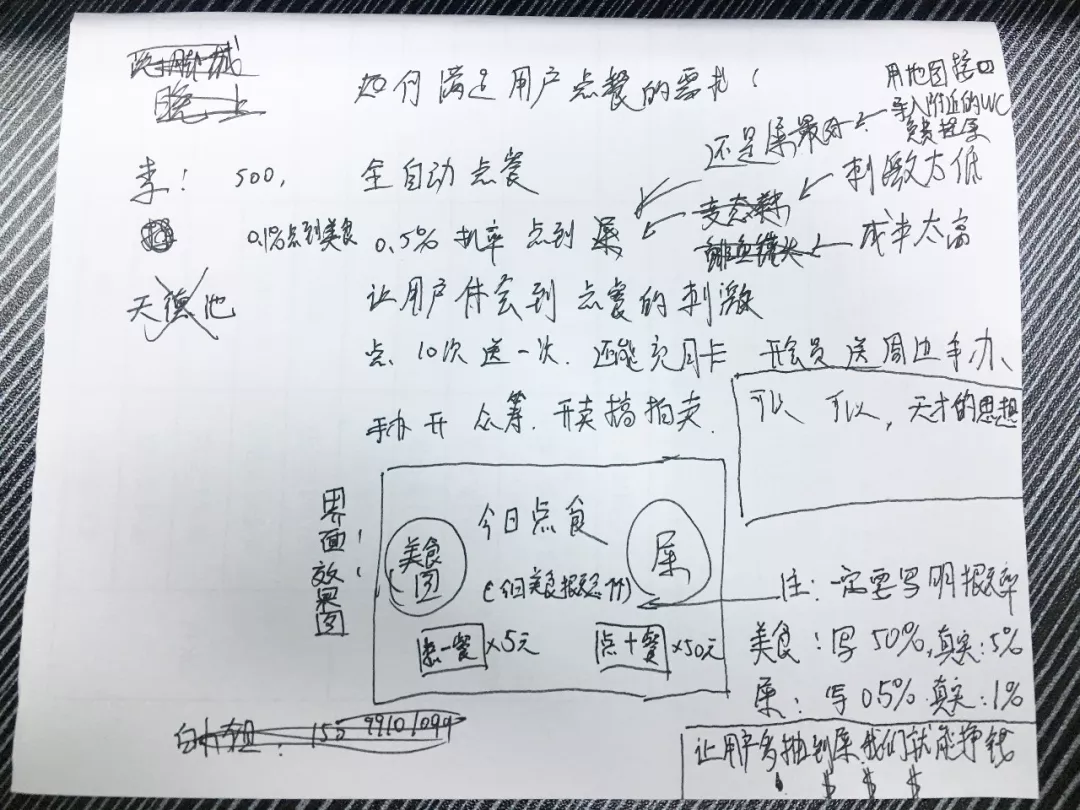 晚上
如何满足用户点餐的需求!
用地图接口
导入附近的WC
免费提屎
还是屎最好
李! 500, 全自动点餐
刺激太低
0.1%点到美食 0.5%机率 点到 屎
鲱鱼罐头
成本太高
天德池
让用户体会到点餐的刺激
点10次送一次. 还能充月卡 开会员送周边手办、
手办开众筹. 开卖搞拍卖.
可以 可以, 天才的思想
界面效果图:
今日点食
美食图
屎
(今日美食概率
点一餐 ×5元
点十餐 ×50元
注: 一定要写明概率
美食: 写50%, 真实: 5%
屎: 写0.5% 真实: 1%
让用户多抽到屎我们就能挣钱
$ $ $